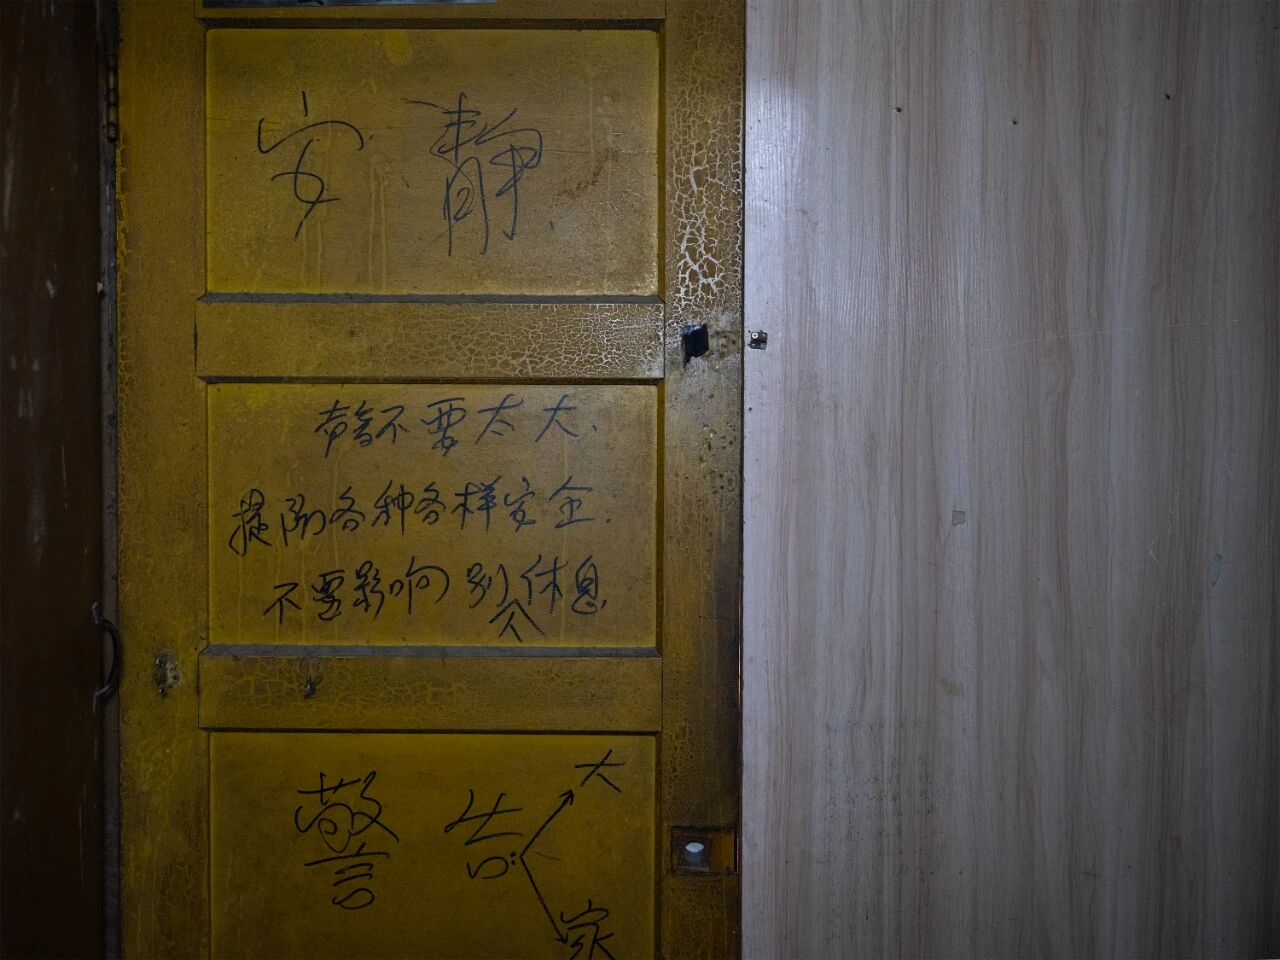 安静.
声音不要太大.
提防各种各样安全.
不要影响别人休息.
警告:
大
家